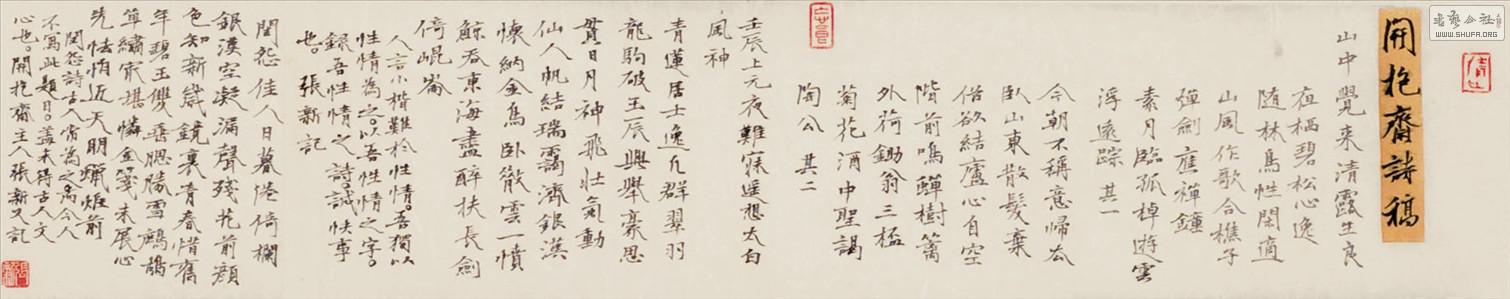 開抱齋詩稿
山中覺來清露生良
夜栖碧松心逸
隨林鳥性閑適
山風作歌合樵子
彈劍應禪鐘
素月臨孤棹遊雲
浮遠踪 其一
今朝不稱意歸厺
臥山東散髮棄
俗欲結廬心自空
階前鳴蟬樹籬
外荷鋤翁三桮
菊花酒中聖謁
陶公 其二
壬辰上元夜難寐遥想太白
風神
青蓮居士逸凡群翠羽
龍駒破玉辰興舉豪思
貫日月神飛壯氣動
仙人帆結瑞靄濟銀漢
懷納金烏臥散雲一噴
鯨吞東海盡醉扶長劍
倚崐崙
人言小楷難於性情。吾獨以
性情為之。以吾性情之字。
録吾性情之詩。誠快事
也。張新記
閨怨佳人日暮倦倚欄
銀漢空凝漏聲殘花前顔
色知新歲鏡裏青春惜舊
年碧玉雙垂腮勝雪鷓鴣
單繡寂堪憐金箋未展心
先怯悄近天明爥炬前
閨怨詩古人常為之。而今人
不寫此題目。蓋未得古人文
心也。開抱齋主人張新又記
書法公社
WWW.SHUFA.ORG